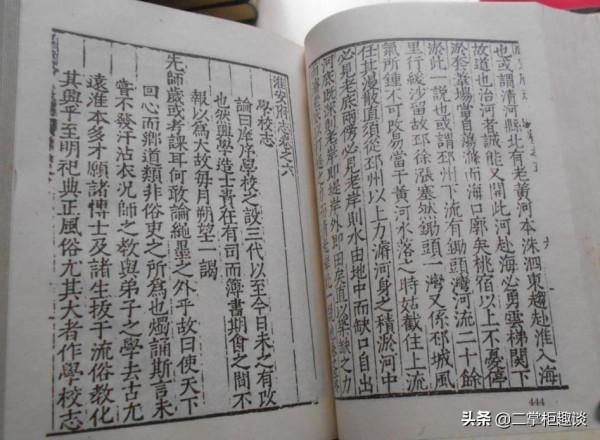 也或謂清河縣北有老黃河本洙泗東趨赴淮入海
故道也治河者誠能又開此河赴海必勇雲梯関下
淤套葦場當自蕩滌而海口廓矣桃宿以上不憂停
淤此一說也或謂邳州下流有鋤頭灣河流二十餘
里行緩沙留故邳徐漲塞缺鋤頭一灣又係邳城風
氣所鍾不可改易當干黃河水落之時姑截住上流
任其漫散直須從邳州以上力濬河身之積淤河中
必見老底兩傍必見老岸則
河底既深老岸
則水由地中而缺口自出
444
淮安府志卷之六
學校志
論曰庠序學校之設三代以至今日未之有改
也然興學造士貴在有司而簿書期會之間不
報以為大故每月朔望一謁
先師歲或考課耳何敢論繩墨之外乎故曰使天下
回心而鄉道類非俗吏之所為也燭誦斯言未
嘗不發汗沾衣況師之教與弟子之學去古尢
遠淮本多才願諸博士及諸生拔干流俗教化
其興乎至明祀典正風俗尢其大者作學校志
头条 @二掌柜趣谈